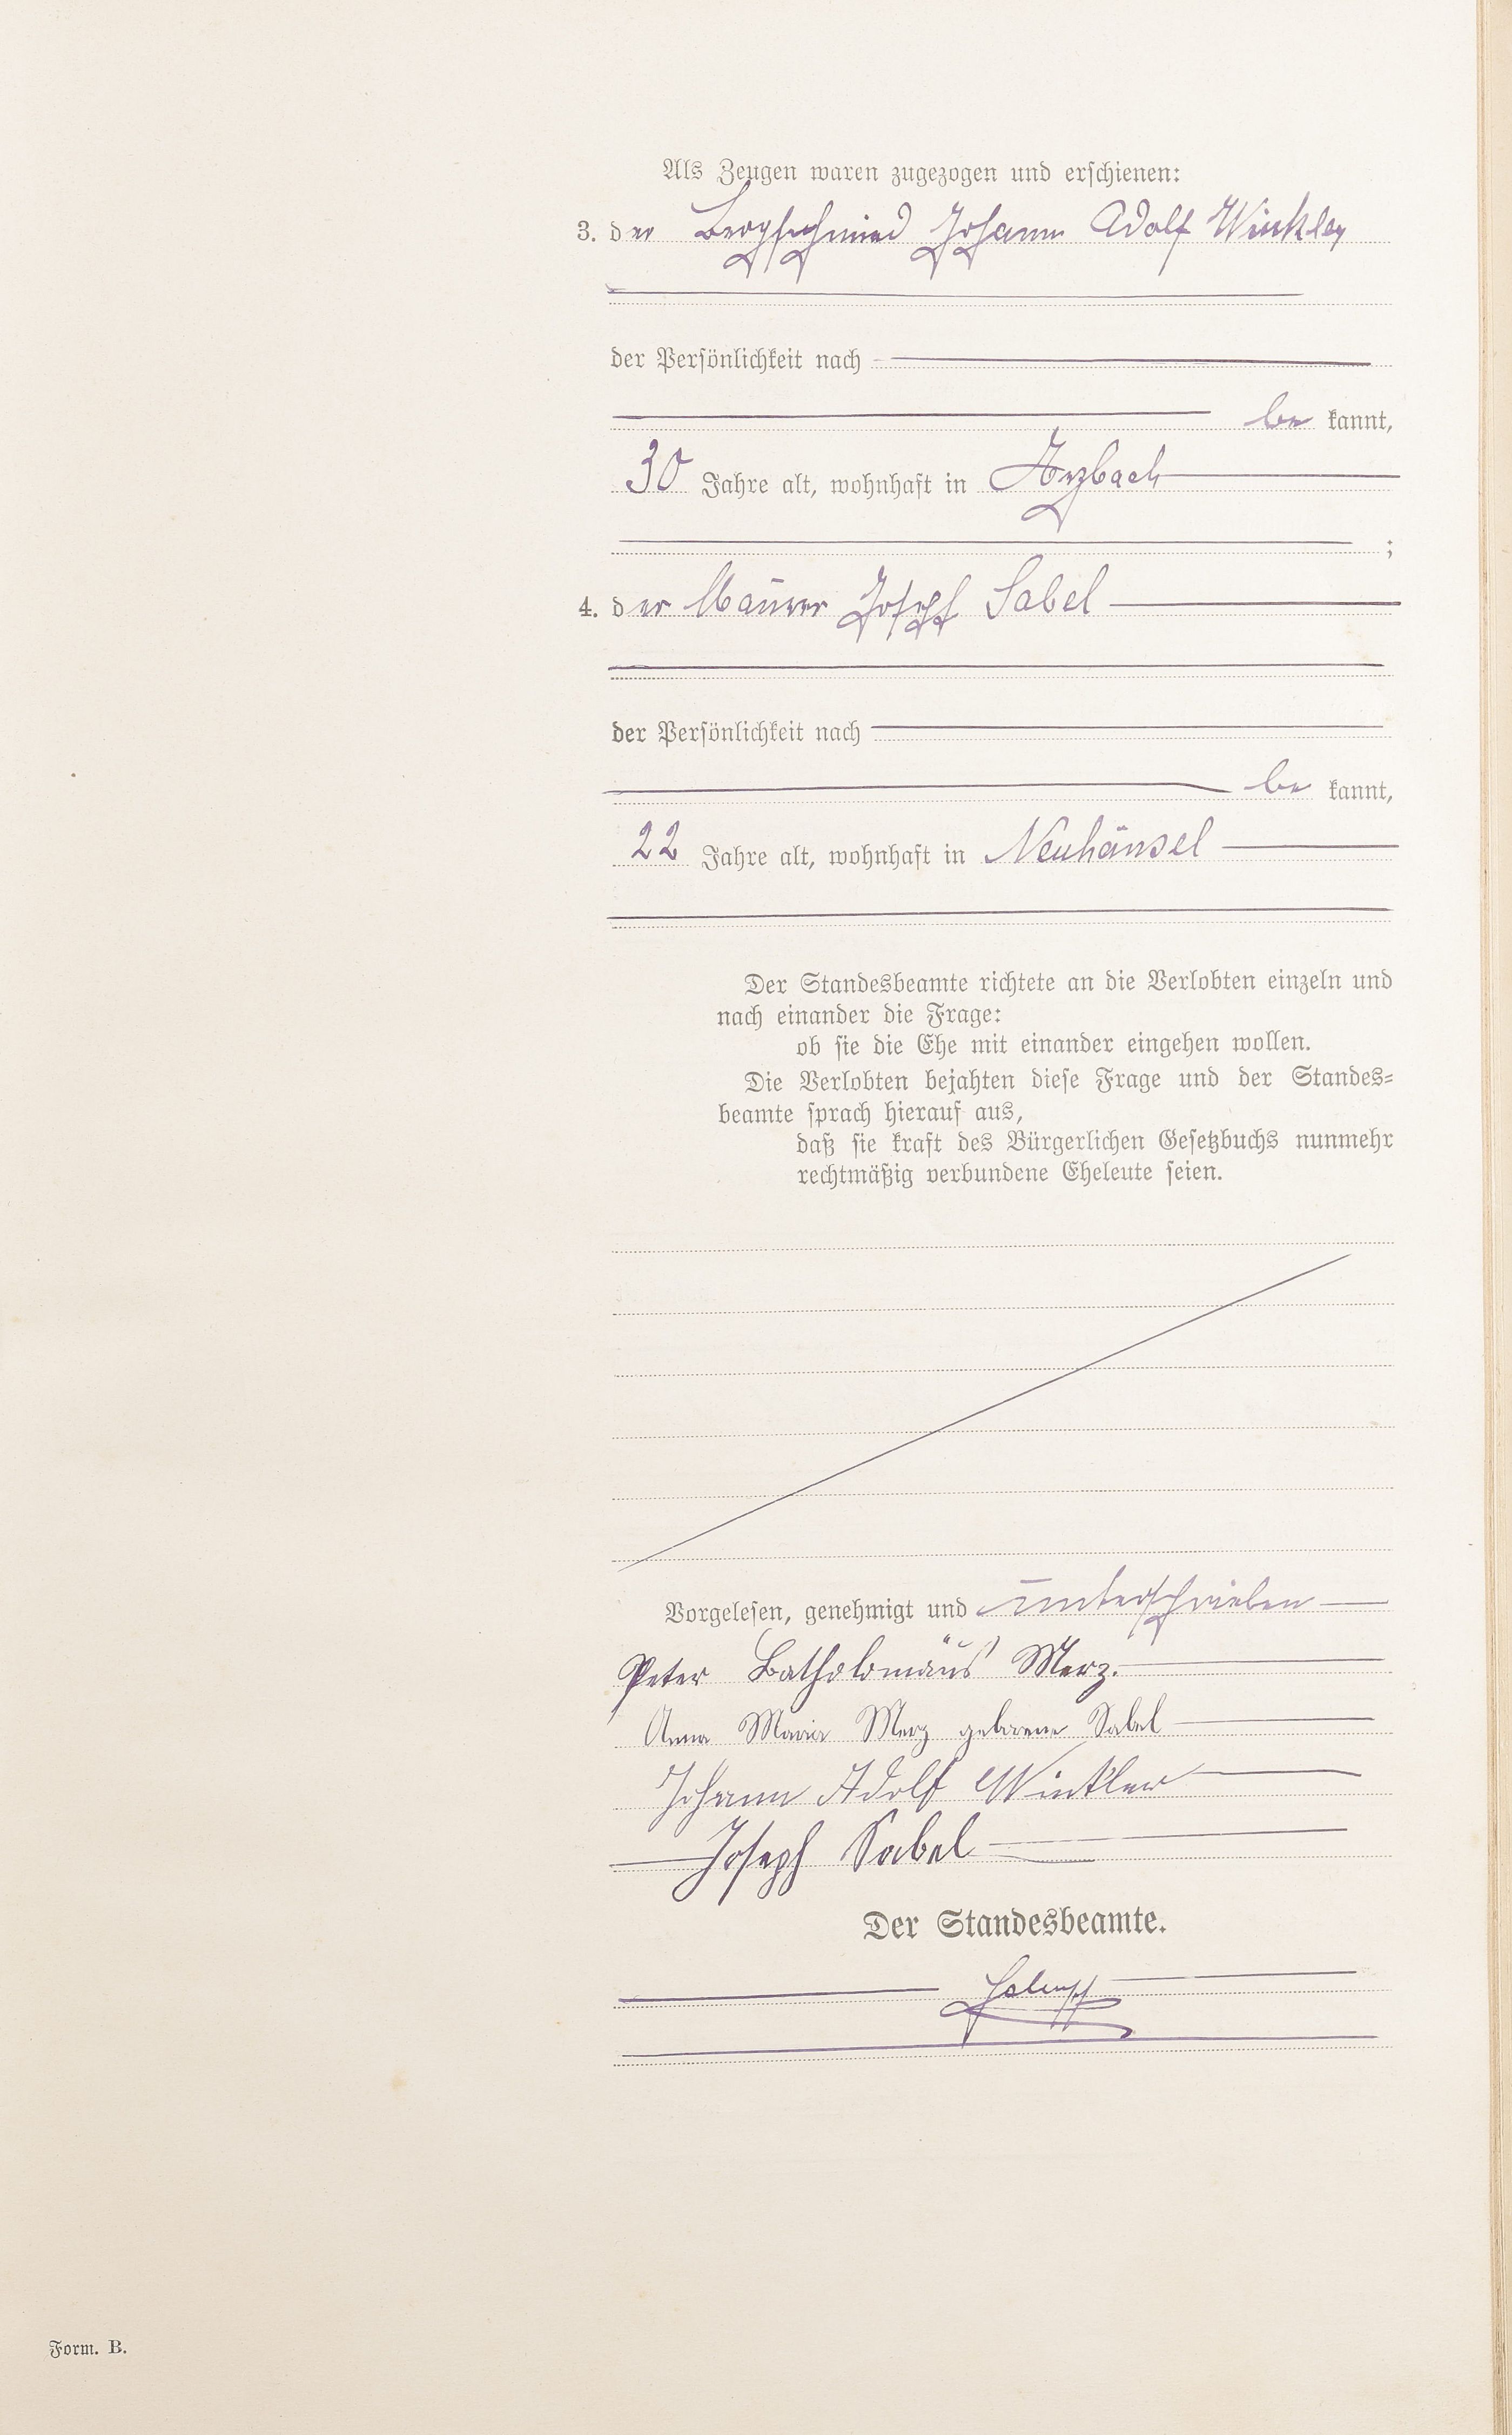 Als Zeugen waren zugezogen und erschienen:
3. der Bergschmied Johann Adolf Winkler
der Persönlichkeit nach
be kannt,
30 Jahre alt, wohnhaft in Arzbach
;
4. der Maurer Joseph Sabel
der Persönlichkeit nach
be kannt,
22 Jahre alt, wohnhaft in Neuhäusel
Der Standesbeamte richtete an die Verlobten einzeln und
nach einander die Frage:
ob sie die Ehe mit einander eingehen wollen.
Die Verlobten bejahten diese Frage und der Standes-
beamte sprach hierauf aus,
daß sie kraft des Bürgerlichen Gesetzbuchs nunmehr
rechtmäßig verbundene Eheleute seien.
Vorgelesen, genehmigt und unterschrieben
Peter Batholomäus Merz.
Anna Maria Merz geborene Sabel
Johann Adolf Winkler
Joseph Sabel
Der Standesbeamte.
Form. B.